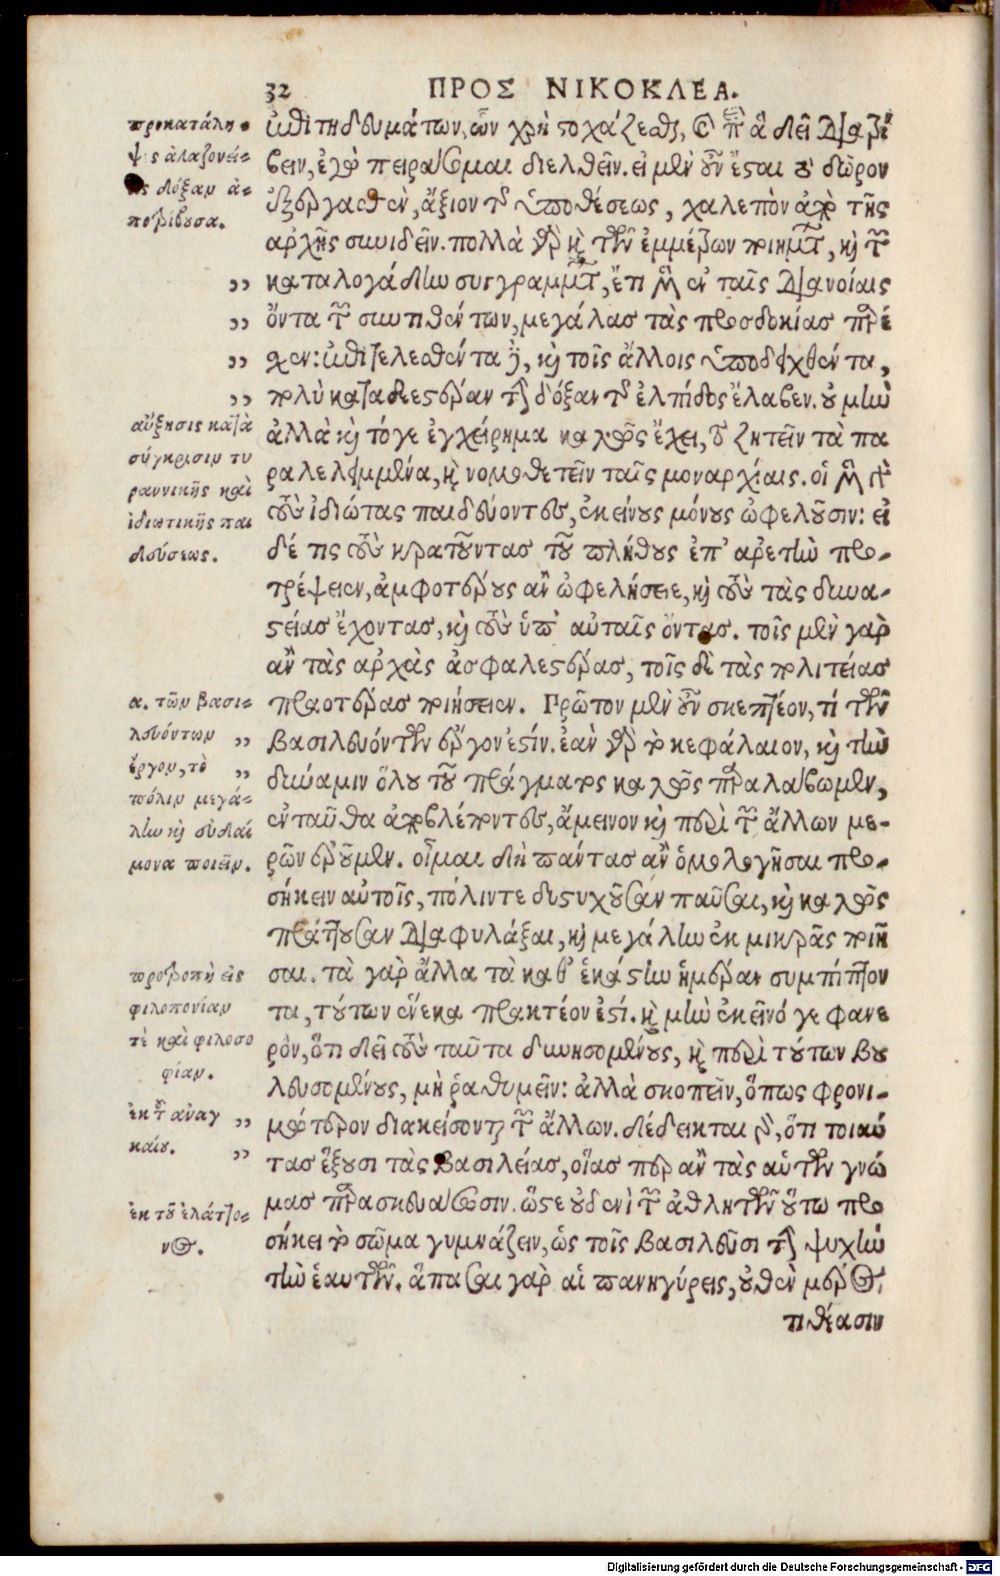 32 ΠΡΟΣ ΝΙΚΟΚΛΕΑ.
προκατάλη-
ψις ἀλαζονεί-
ας δόξαν ἀ-
ποτρίβουσα.
αὔξησις κατὰ
σύγκρισιν τυ
ραννικῆς καὶ
ἰδιωτικῆς παι
δεύσεως.
α. τῶν βασι-
λευόντων ,,
ἔργον, τὸ ,,
πόλιν μεγά-
λην καὶ εὐδαί
μονα ποιεῖν.
προτροπὴ εἰς
φιλοπονίαν
τὲ καὶ φιλοσο
φίαν.
ἐκ τοῦ ἀναγ ,,
καίου. ,,
ἐκ τοῦ ἐλάττο-
νος.
ἐπιτηδευμάτων, ὧν χρὴ στοχάζεσθαι, καὶ περὶ ἃ δεῖ διατρί
βειν, ἐγὼ πειράσομαι διελθεῖν. εἰ μὲν οὖν ἔσται τὸ δῶρον
ἐξεργασθὲν, ἄξιον τῆς ὑποθέσεως, χαλεπὸν ἀπὸ τῆς
ἀρχῆς συνιδεῖν. πολλὰ γὰρ καὶ τῶν ἐμμέτρων ποιημάτων, καὶ τῶν
,, καταλογάδην συγγραμμάτων, ἔτι μὲν ἐν ταῖς διανοίαις
,, ὄντα τῶν συντιθέντων, μεγάλας τὰς προσδοκίας παρέ
,, σχεν: ἐπιτελεσθέντα δὲ, καὶ τοῖς ἄλλοις ὑποδειχθέντα,
,, πολὺ καταδεεστέραν τὴν δόξαν τῆς ἐλπίδος ἔλαβεν. οὐ μὴν
ἀλλὰ καὶ τόγε ἐγχείρημα καλῶς ἔχει, τὸ ζητεῖν τὰ πα
ραλελειμμένα, καὶ νομοθετεῖν ταῖς μοναρχίαις. οἱ μὲν γὰρ
τοὺς ἰδιώτας παιδεύοντες, ἐκείνους μόνους ὠφελοῦσιν: εἰ
δέ τις τοὺς κρατοῦντας τοῦ πλήθους ἐπ' ἀρετὴν προ-
τρέψειεν, ἀμφοτέρους ἂν ὠφελήσειε, καὶ τοὺς τὰς δυνα-
στείας ἔχοντας, καὶ τοὺς ὑπ' αὐταῖς ὄντας. τοῖς μὲν γὰρ
ἂν τὰς ἀρχὰς ἀσφαλεστέρας, τοῖς δὲ τὰς πολιτείας
πραοτέρας ποιήσειεν. Πρῶτον μὲν οὖν σκεπτέον, τί τῶν
βασιλευόντων ἔργον ἐστίν. ἐὰν γὰρ τὸ κεφάλαιον, καὶ τὴν
δύναμιν ὅλου τοῦ πράγματος καλῶς παραλάβωμεν,
ἐνταῦθα ἀποβλέποντες, ἄμεινον καὶ περὶ τῶν ἄλλων με-
ρῶν ἐροῦμεν. οἶμαι δὴ πάντας ἂν ὁμολογῆσαι προ-
σήκειν αὐτοῖς, πόλιντε δυστυχοῦσαν παῦσαι, καὶ καλῶς
πράττουσαν διαφυλάξαι, καὶ μεγάλην ἐκ μικρᾶς ποιῆ
σαι. τὰ γὰρ ἄλλα τὰ καθ' ἑκάστην ἡμέραν συμπίπτον
τα, τούτων ἕνεκα πρακτέον ἐστί. καὶ μὴν ἐκεῖνό γε φανε
ρὸν, ὅτι δεῖ τοὺς ταῦτα δυνησομένους, καὶ περὶ τούτων βου
λευσομένους, μὴ ῥαθυμεῖν: ἀλλὰ σκοπεῖν, ὅπως φρονι-
μώτερον διακείσονται τῶν ἄλλων. δέδεικται γὰρ, ὅτι τοιαύ
τας ἕξουσι τὰς βασιλείας, οἵας περ ἂν τὰς αὑτῶν γνώ
μας παρασκευάσωσιν. ὥστε οὐδενὶ τῶν ἀθλητῶν οὕτω προ
σήκει τὸ σῶμα γυμνάζειν, ὡς τοῖς βασιλεῦσι τὴν ψυχὴν
τὴν ἑαυτῶν. ἅπασαι γὰρ αἱ πανηγύρεις, οὐθὲν μέρος
τιθέασιν
Digitalisierung gefördert durch die Deutsche Forschungsgemeinschaft - DFG